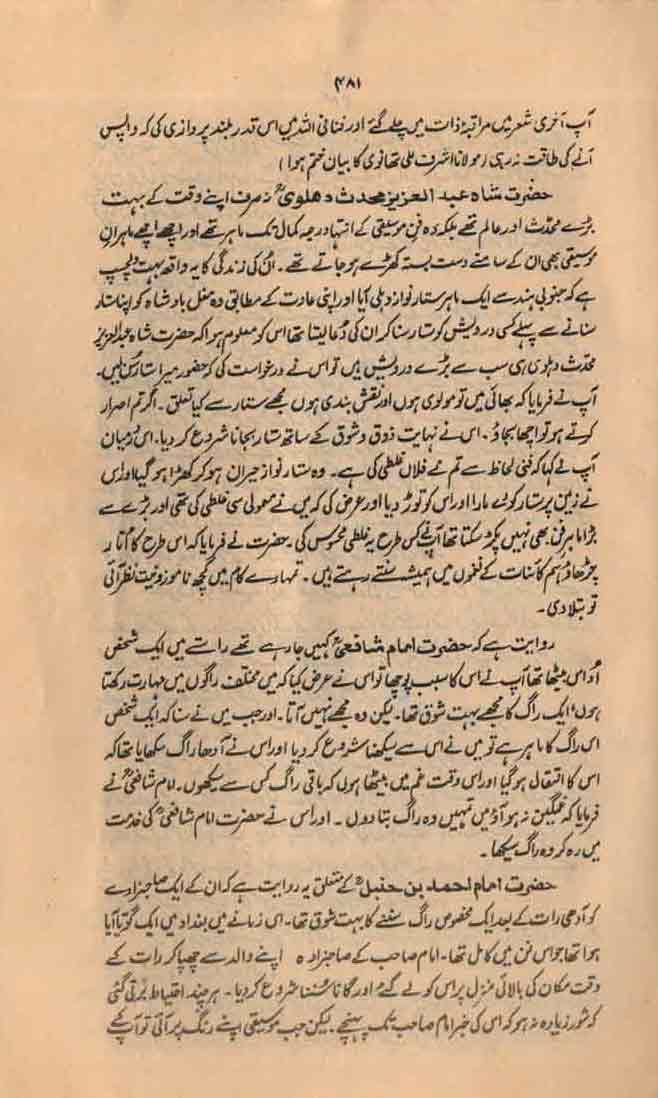 ۴۸۱
آپ آخری شعر میں مراقبۂ ذات میں چلے گئے اور فنافی اللہ میں اس قدر بلند پروازی کی کہ واپس
آنے کی طاقت نہ رہی (مولانا اشرف علی تھانوی کا بیان ختم ہوا)
حضرت شاہ عبد العزیز محدث دھلوی ؒ نہ صرف اپنے وقت کے بہت
بڑے محدّث اور عالم تھے بلکہ وہ فنِ موسیقی کے انتہا درجہ کمال تک ماہر تھے اور اچھے اچھے ماہرانِ
موسیقی بھی ان کے سامنے دست بستہ کھڑے ہو جاتے تھے۔ اُن کی زندگی کا یہ واقعہ بہت دلچسپ
ہے کہ جنوبی ہند سے ایک ماہر ستار نواز دہلی آیا اور اپنی عادت کے مطابق وہ مغل بادشاہ کو اپنا ستار
سنانے سے پہلے کسی درویش کو ستار سنا کر ان کی دُعا لیتا تھا اس کو معلوم ہوا کہ حضرت شاہ عبدالعزیز
محدّث دہلوی ہی سب سے بڑے درویش ہیں تو اس نے درخواست کی کہ حضور میرا ستار سُن لیں۔
آپ نے فرمایا کہ بھائی میں تو مولوی ہوں اور نقش بندی ہوں مجھے ستار سے کیا تعلق۔ اگر تم اصرار
کرتے ہو تو اچھا بجاؤ۔ اس نے نہایت ذوق و شوق کے ساتھ ستار بجانا شروع کر دیا۔ اس دَرمیان
آپ نے کہا کہ فنی لحاظ سے تم نے فلاں غلطی کی ہے۔ وہ ستار نواز حیران ہو کر کھڑا ہو گیا اور اس
نے زمین پر ستار کو دے مارا اور اس کو توڑ دیا اور عرض کی کہ میں نے معمولی سی غلطی کی تھی اور بڑے سے
بڑا ماہرِ فن بھی نہیں پکڑ سکتا تھا آپ نے کس طرح یہ غلطی محسوس کی۔ حضرت نے فرمایا کہ اس طرح کا اُتار
چڑھاؤ ہم کائنات کے نغموں میں ہمیشہ سنتے رہتے ہیں۔ تمہارے کام میں کچھ ناموزونیت نظر آئی
تو بتلا دی۔
روایت ہے کہ حضرت امام شافعی ؒ کہیں جا رہے تھے راستے میں ایک شخص
اُداس بیٹھا تھا آپ نے اس کا سبب پوچھا تو اس نے عرض کیا کہ میں مختلف راگوں میں مہارت رکھتا
ہوں ایک راگ کا مجھے بہت شوق تھا۔ لیکن وہ مجھے نہیں آتا۔ اور جب میں نے سنا کہ ایک شخص
اس راگ کا ماہر ہے تو میں نے اس سے سیکھنا شروع کر دیا اور اس نے آدھا راگ سکھایا تھا کہ
اس کا انتقال ہو گیا اور اس وقت غم میں بیٹھا ہوں کہ باقی راگ کس سے سیکھوں۔ امام شافعی ؒ نے
فرمایا کہ غمگین نہ ہو آؤ میں تمہیں وہ راگ بتا دوں۔ اور اس نے حضرت امام شافعی ؒ کی خدمت
میں رہ کر وہ راگ سیکھا۔
حضرت امام احمد بن حنبل ؒ کے متعلق یہ روایت ہے کہ ان کے ایک صاحبزادے
کو آدھی رات کے بعد ایک مخصوص راگ سننے کا بہت شوق تھا۔ اس زمانے میں بغداد میں ایک گویّا آیا
ہوا تھا جو اس فن میں کامل تھا۔ امام صاحب کے صاحبزادہ اپنے والد سے چھپا کر رات کے
وقت مکان کی بالائی منزل پر اس کو لے گئے اور گانا سُننا شروع کر دیا۔ ہر چند احتیاط برتی گئی
کہ شور زیادہ نہ ہو کہ اس کی خبر امام صاحب تک پہنچے۔ لیکن جب موسیقی اپنے رنگ پر آئی تو آپ کے